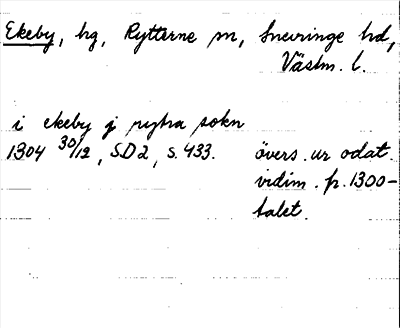 Ekeby, hg, Rytterne sn, Snevringe hd,
Västm. l.
i ekeby j rytra sokn
1304 30/12, SD2, s. 433. övers. ur odat.
vidim. fr. 1300-
talet.